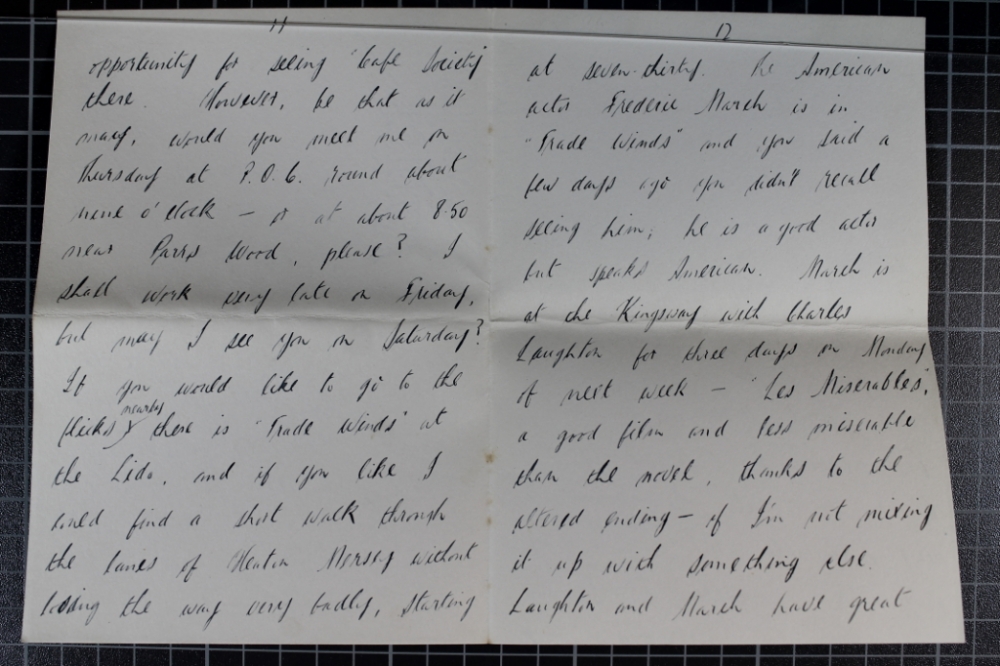 11
opportunity for seeing 'Cafe Society'
there. However, be that as it
may, would you meet me on
Thursday at P.O.6. round about
nine o'clock – or at about 8.50
near Parrs Wood, please? I
shall work very late on Friday,
but may I see you on Saturday?
If you would like to go to the
nearby
flicks, there is "Trade Winds" at
the Lido, and if you like I
could find a short walk through
the lanes of Heaton Mersey without
losing the way very badly, starting
12
at seven-thirty. The American
actor Frederic March is in
"Trade Winds" and you said a
few days ago you didn't recall
seeing him; he is a good actor
but speaks American. March is
at the Kingsway with Charles
Laughton for three days on Monday
of next week – 'Les Miserables',
a good film and less miserable
than the novel, thanks to the
altered ending – if I'm not mixing
it up with something else.
Laughton and March have great